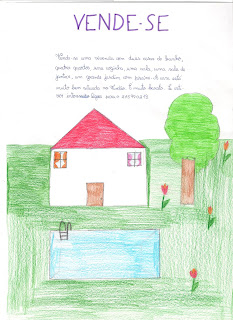 VENDE-SE
Vende-se uma vivenda com duas casas de banho,
quatro quartos, uma cozinha, uma sala, uma sala de
jantar, um grande jardim com piscina. A casa está
muito bem situada na
É muito barata. Se esti-
ver interessado ligue para o